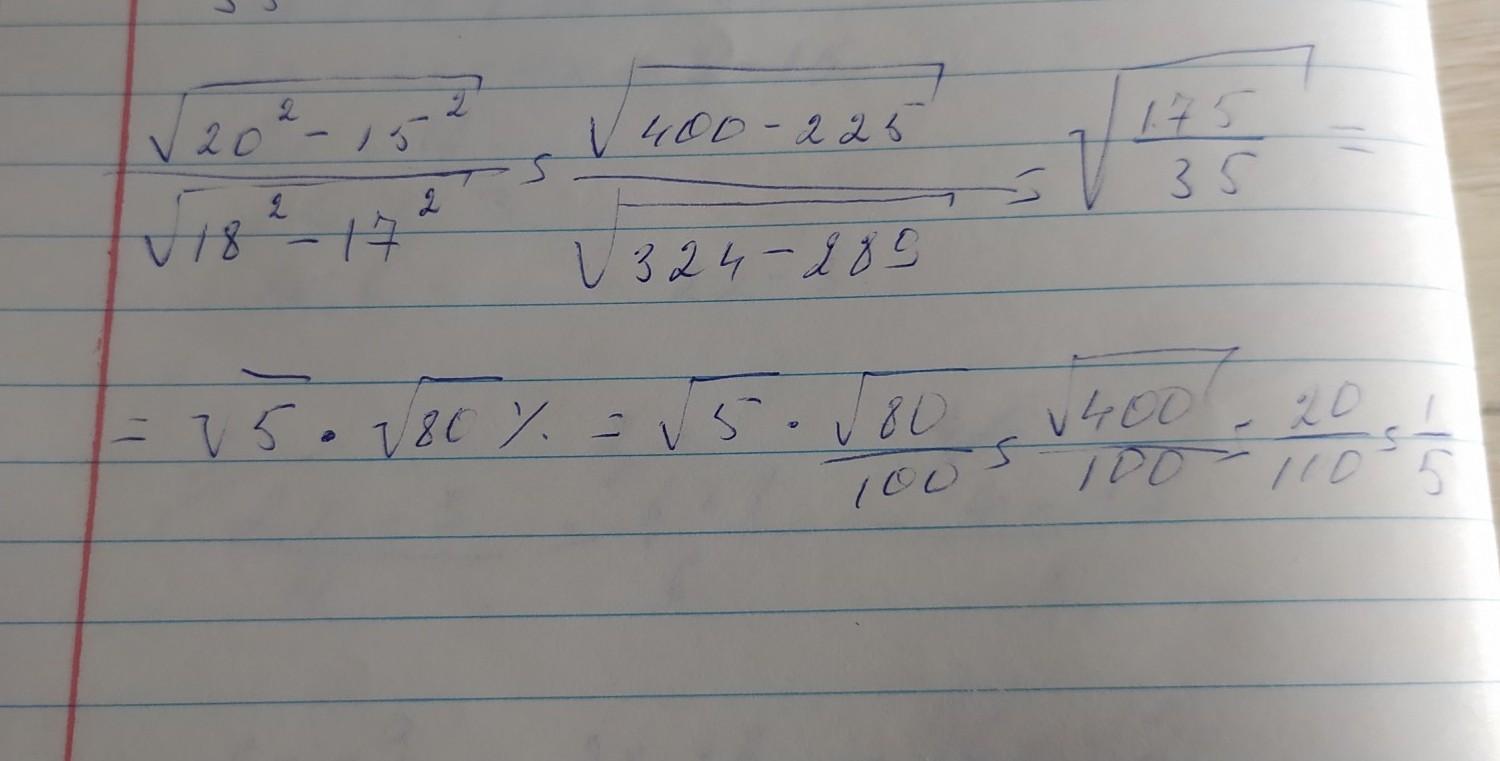 √(20² - 15²) / √(18² - 17²) = √(400 - 225) / √(324 - 289) = √(175/35) =
= √5 · √80 % = √5 · √80/100 = √400/100 = 20/110 = 1/5